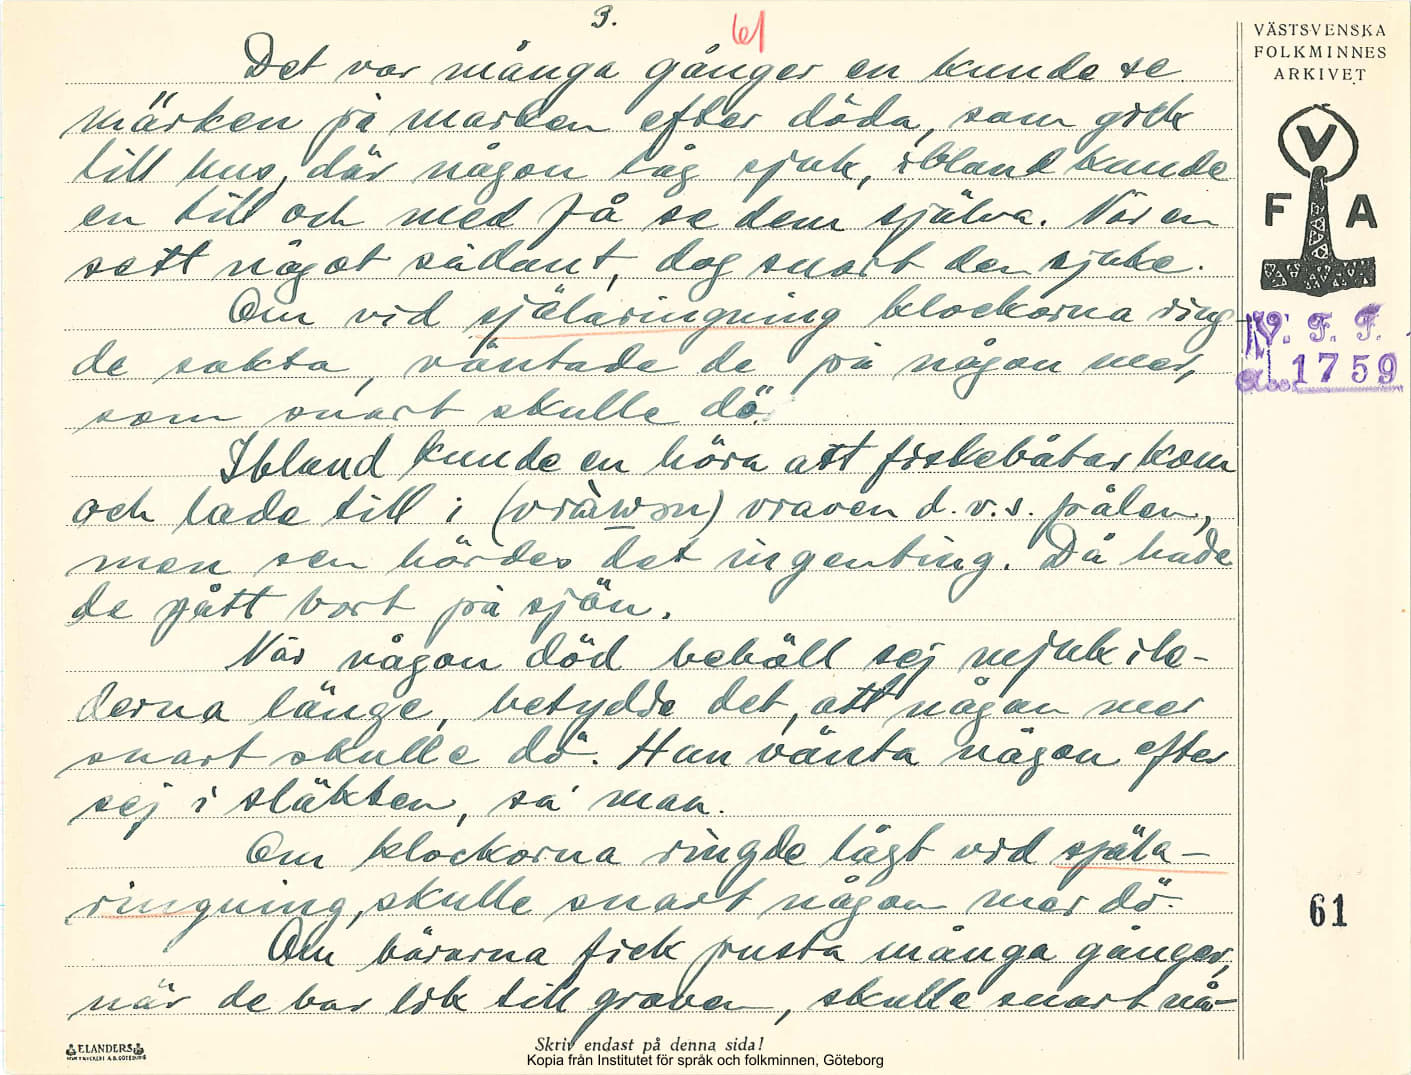 3.
61
VÄSTSVENSKA
FOLKMINNES
ARKIVET
V
F A
V. F. F.
1759
Det var många gånger en kunde se
märken på marken efter döda, som gick
till hus, där någon låg sjuk, ibland kunde
en till och med få se dem själva. När en
sett något sådant, dog snart den sjuke.
Om vid själaringning klockorna ring
de sakta, väntade de på någon mer,
som snart skulle dö.
Ibland kunde en höra att fiskebåtar kom
och lade till i (vràwən) vraven d.v.s. pålen,
men sen hördes det ingenting. Då hade
de gått bort på sjön.
När någon död behöll sej mjuk i le-
derna länge, betydde det, att någon mer
snart skulle dö. Han vänta någon efter
sej i släkten, sa man.
Om klockorna ringde lågt vid själa-
ringning, skulle snart någon mer dö.
Om bärarna fick pusta många gånger,
när de bar lik till graven, skulle snart nå-
61
ELANDERS
Skriv endast på denna sida!
Kopia från Institutet för språk och folkminnen, Göteborg